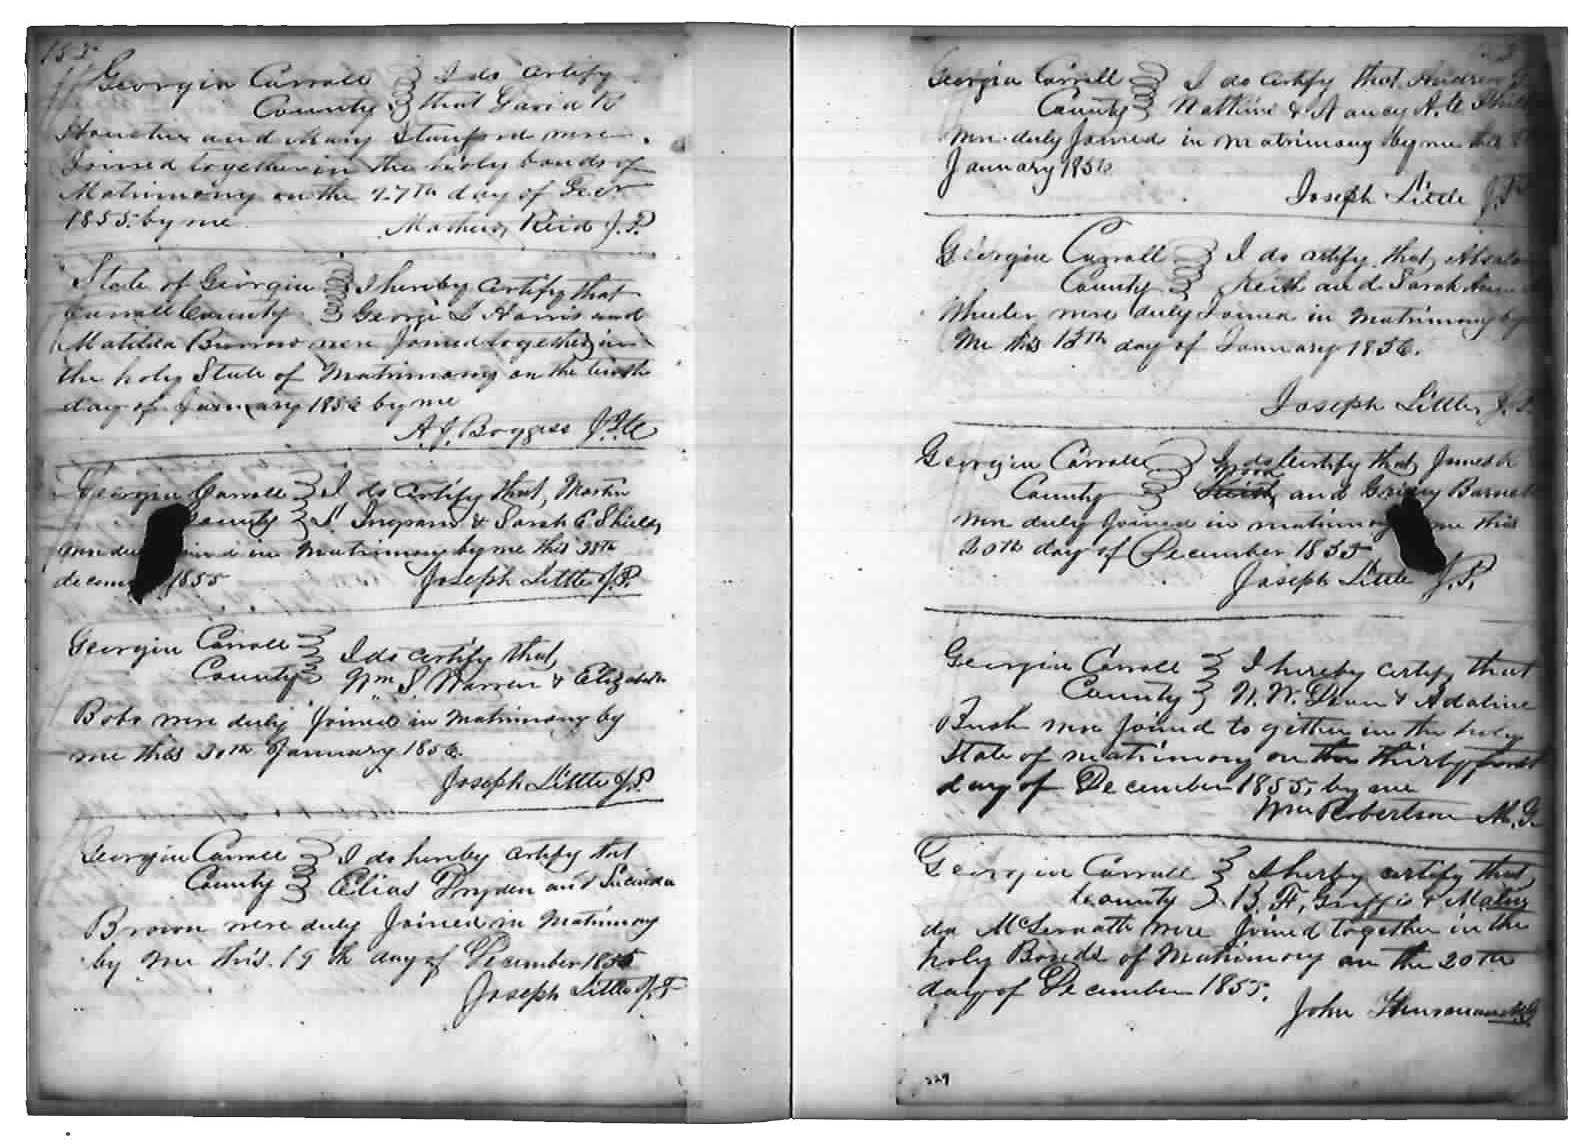 153
Georgia Carroll I do certify
County that David R
Houston and Mary Stanford were
Joined together in the holy bonds of
Matrimony on the 27th day of Decr
1855 by me Mathew Reid J.P.
State of Georgia I hereby certify that
Carroll County George D Harris and
Matilda Burrow were Joined together in
the holy State of Matrimony on the tenth
day of January 1856 by me
A. J. Boggess J.I.C
Georgia Carroll I do certify that, Martin
County S. Ingram & Sarah E Shields
were in Matrimony by me this
1855 Joseph Little J.P.
Georgia Carroll I do certify that,
County Wm S. Warren & Elizabeth
Bobo were duly Joined in Matrimony by
me this 30th January 1856.
Joseph Little J.P.
Georgia Carroll I do hereby certify that
County Elias Dryden and Lucinda
Brown were duly Joined in Matrimony
by me this 19th day of December 1855
Joseph Little J.P
Georgia Carroll I do certify that, Andrew
County & Nancy A. E
were duly Joined in matrimony by me this
January 1856
Joseph Little J.P
Georgia Carroll I do certify that,
County Keith and Sarah
Wheeler were duly Joined in Matrimony by
me this 13th day of January 1856.
Joseph Little, J.P.
Georgia Carroll I do certify that, James
Wood
County and Barnet
were duly Joined in matrimony me this
20th day of December 1855
Joseph Little J.P.
Georgia Carroll I hereby certify that
County N. W. Dean & Adaline
Bush were Joined to gether in the holy
State of matrimony on the thirty first
day of December 1855, by me
Wm Robertson M.G.
Georgia Carroll I herby certify that,
County B. F, Griffis &
were Joined together in the
holy Bonds of Matrimony on the 20th
day of December 1855.
John Thurman M.G
329